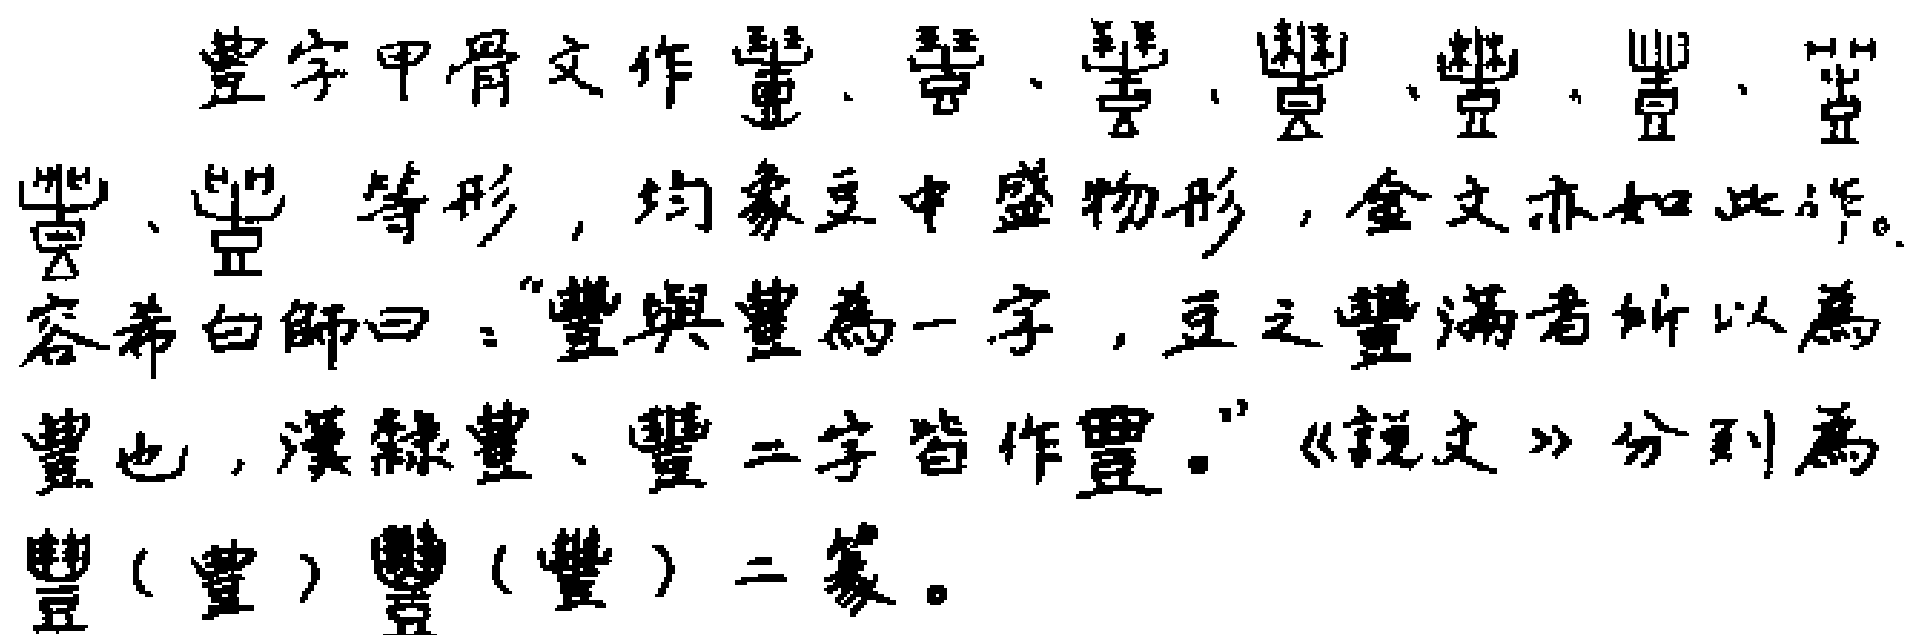 豊字甲骨文作、、、、、、
、等形，均象豆中盛物形，金文亦如此作。
容希白師曰："豐與豊為一字，豆之豐滿者所以為
豊也，漢隸豊、豐二字皆作豊。"《說文》分列為
（豊）（豐）二篆。